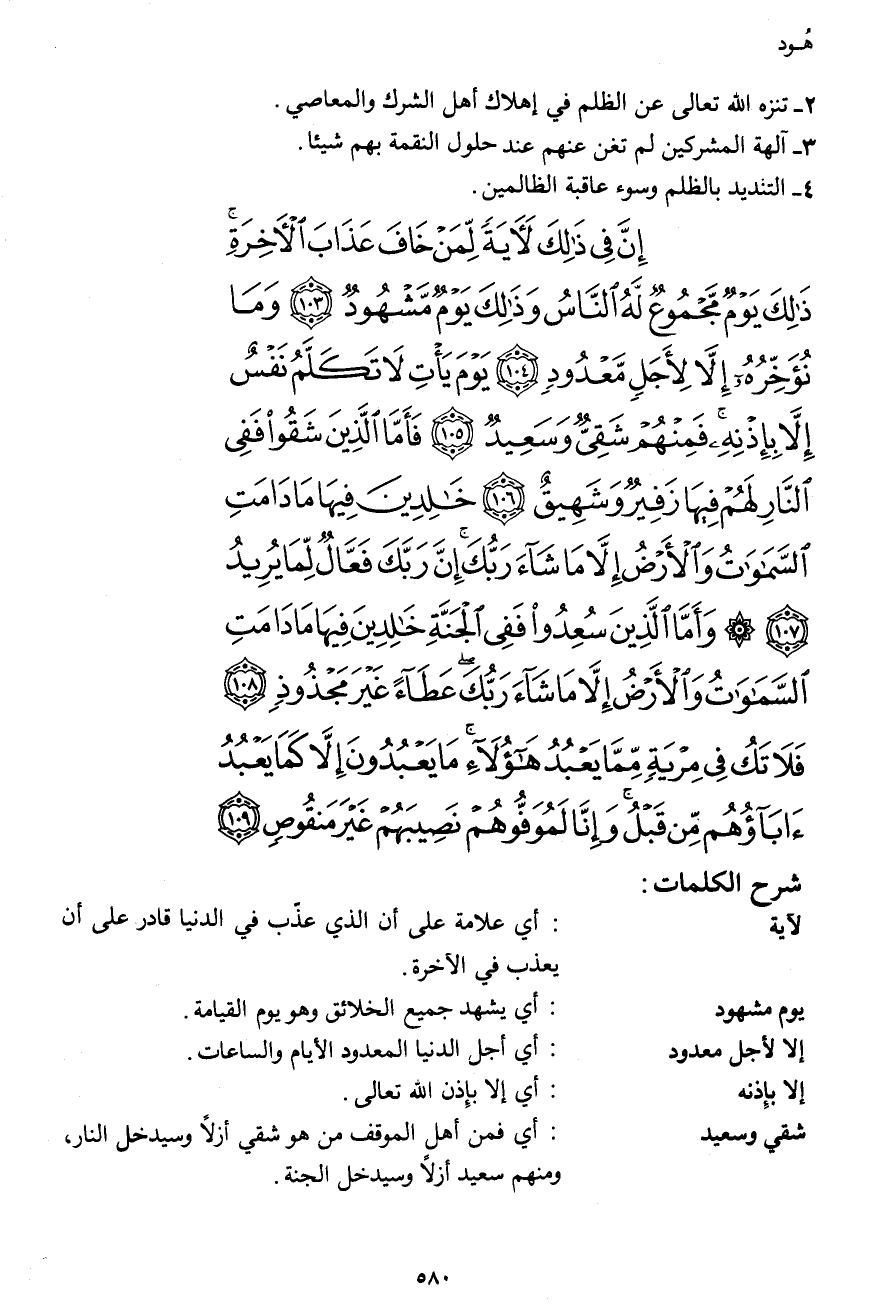 هُـود
٢ـ تنزه الله تعالى عن الظلم في إهلاك أهل الشرك والمعاصي .
٣ـ آلهة المشركين لم تغن عنهم عند حلول النقمة بهم شيئا .
٤ـ التنديد بالظلم وسوء عاقبة الظالمين .
إِنَّ فِي ذَٰلِكَ لَأَيَةً لِّمَنْ خَافَ عَذَابَ ٱلْأَخِرَةِۚ
ذَٰلِكَ يَوْمٌ مَّجْمُوعٌ لَّهُ ٱلنَّاسُ وَذَٰلِكَ يَوْمٌ مَّشْهُودٌ ١٠٣ وَمَا
نُؤَخِّرُهُۥٓ إِلَّا لِأَجَلٍ مَّعْدُودٍ ١٠٤ يَوْمَ يَأْتِ لَا تَكَلَّمُ نَفْسٌ
إِلَّا بِإِذْنِهِۦۚ فَمِنْهُمْ شَقِىٌّ وَسَعِيدٌ ١٠٥ فَأَمَّا ٱلَّذِينَ شَقُوا۟ فَفِى
ٱلنَّارِ لَهُمْ فِيهَا زَفِيرٌ وَشَهِيقٌ ١٠٦ خَٰلِدِينَ فِيهَا مَا دَامَتِ
ٱلسَّمَٰوَٰتُ وَٱلْأَرْضُ إِلَّا مَا شَآءَ رَبُّكَۚ إِنَّ رَبَّكَ فَعَّالٌ لِّمَا يُرِيدُ
١٠٧ ۞ وَأَمَّا ٱلَّذِينَ سُعِدُوا۟ فَفِى ٱلْجَنَّةِ خَٰلِدِينَ فِيهَا مَا دَامَتِ
ٱلسَّمَٰوَٰتُ وَٱلْأَرْضُ إِلَّا مَا شَآءَ رَبُّكَۖ عَطَآءً غَيْرَ مَجْذُوذٍ ١٠٨
فَلَا تَكُ فِى مِرْيَةٍ مِّمَّا يَعْبُدُ هَٰٓؤُلَآءِۚ مَا يَعْبُدُونَ إِلَّا كَمَا يَعْبُدُ
ءَابَآؤُهُم مِّن قَبْلُۚ وَإِنَّا لَمُوَفُّوهُمْ نَصِيبَهُمْ غَيْرَ مَنقُوصٍ ١٠٩
شرح الكلمات :
لآية : أي علامة على أن الذي عذّب في الدنيا قادر على أن
يعذب في الآخرة .
يوم مشهود : أي يشهد جميع الخلائق وهو يوم القيامة .
إلا لأجل معدود : أي أجل الدنيا المعدود الأيام والساعات .
إلا بإذنه : أي إلا بإذن الله تعالى .
شقي وسعيد : أي فمن أهل الموقف من هو شقي أزلاً وسيدخل النار،
ومنهم سعيد أزلاً وسيدخل الجنة .
٥٨٠